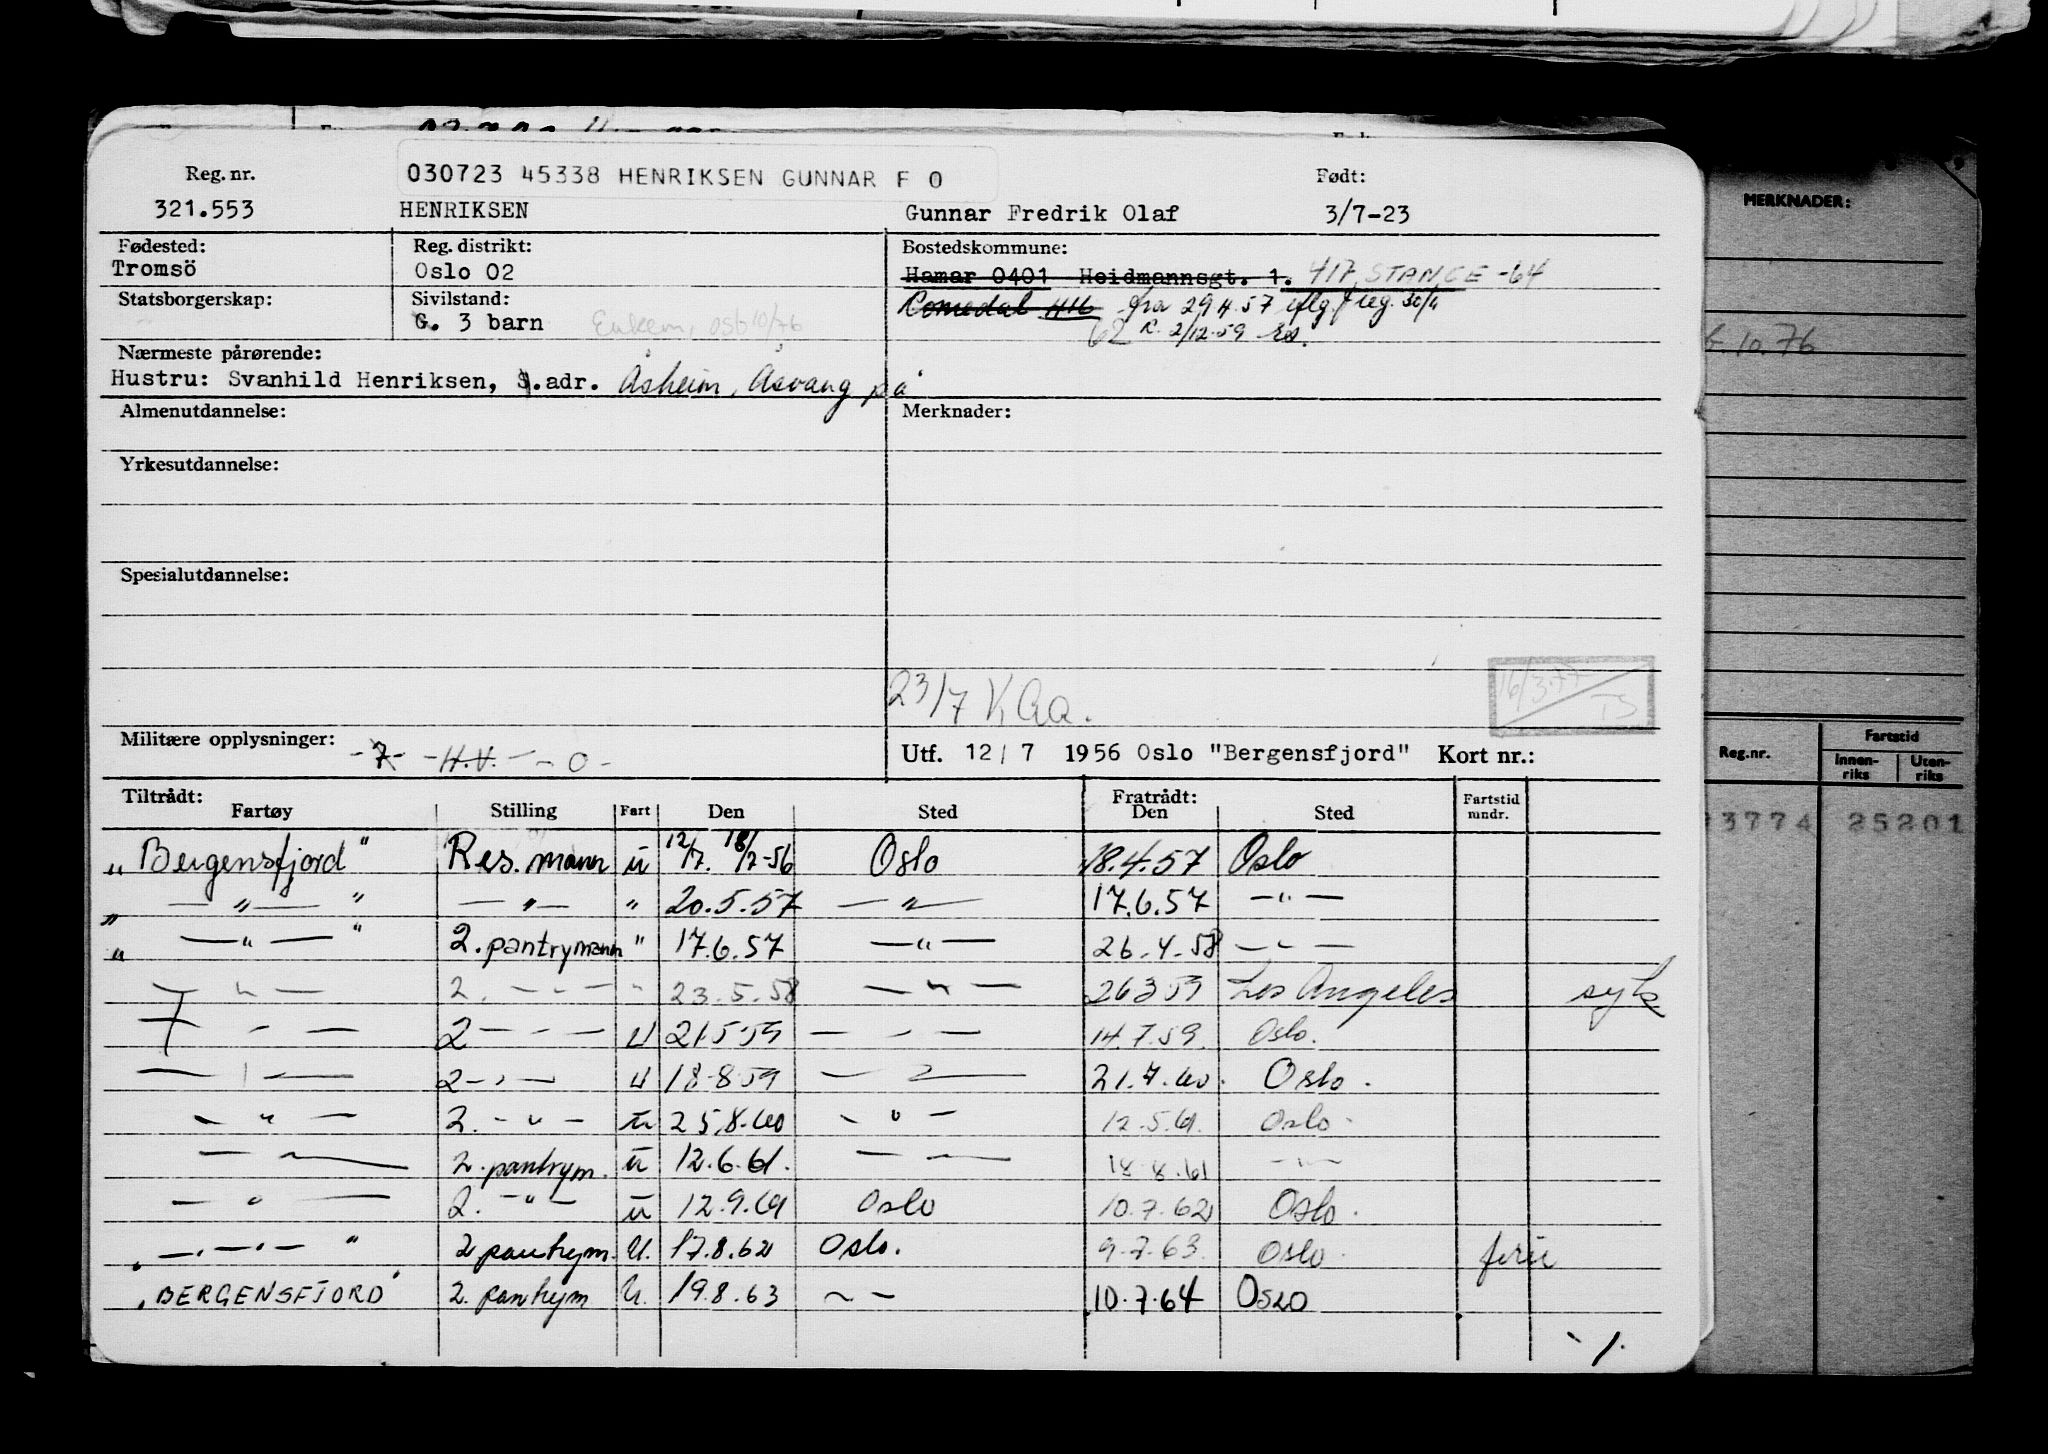 030723 45338 HENRIKSEN GUNNAR F O
Reg. nr. Født:
321.553 HENRIKSEN Gunnar Fredrik Olaf 3/7-23
Fødested: Reg. distrikt: Bostedskommune:
Tromsö Oslo 02 Hamar 0401 Heidmannsgt. 1. 417, STANGE -64
Statsborgerskap: Sivilstand: Romedal 416 fra 29.4.57 iflg. reg. 30/4
G. 3 barn Enkem, Oslo 10/76 62 R. 2/12-59
Nærmeste pårørende:
Hustru: Svanhild Henriksen, s.adr. Åsheim, Åsvang på
Almenutdannelse: Merknader:
Yrkesutdannelse:
Spesialutdannelse:
23/7 KAa.
16/3.77 TS
Militære opplysninger: -7- -H.V.- -0-
Utf. 12/7 1956 Oslo "Bergensfjord" Kort nr.:
Tiltrådt: Fratrådt: Fartstid
Fartøy Stilling Fart Den Sted Den Sted mndr.
"Bergensfjord" Res. mann u 12/7. 18/7-56 Oslo 18.4.57 Oslo
" — " — " — " — " 20.5.57 — " — 17.6.57 — " —
" — " — " 2. pantrymann " 17.6.57 — " — 26.4.58 — " —
— " — 2. — " — " 23.5.58 — " — 26.3.59 Los Angeles syk
— " — 2 — " — U 21.5.59 — " — 14.7.59. Oslo.
— " — 2 — " — U 18.8.59 — " — 21.7.60. Oslo.
— " — 2. — " — u 25.8.60 — " — 12.5.61. Oslo.
— " — 2. pantrym. u 12.6.61. — " — 18.8.61 — " —
— " — 2. — " — u 12.9.61 Oslo 10.7.62 Oslo.
" — " — " — " 2 pantrym. U. 17.8.62 Oslo. 9.7.63. Oslo ferie
"BERGENSFJORD" 2. pantrym U. 19.8.63 — " — 10.7.64 OSLO
./.
MERKNADER:
6.10.76
Reg.nr. Fartstid
Innen-riks Uten-riks
3774 25201